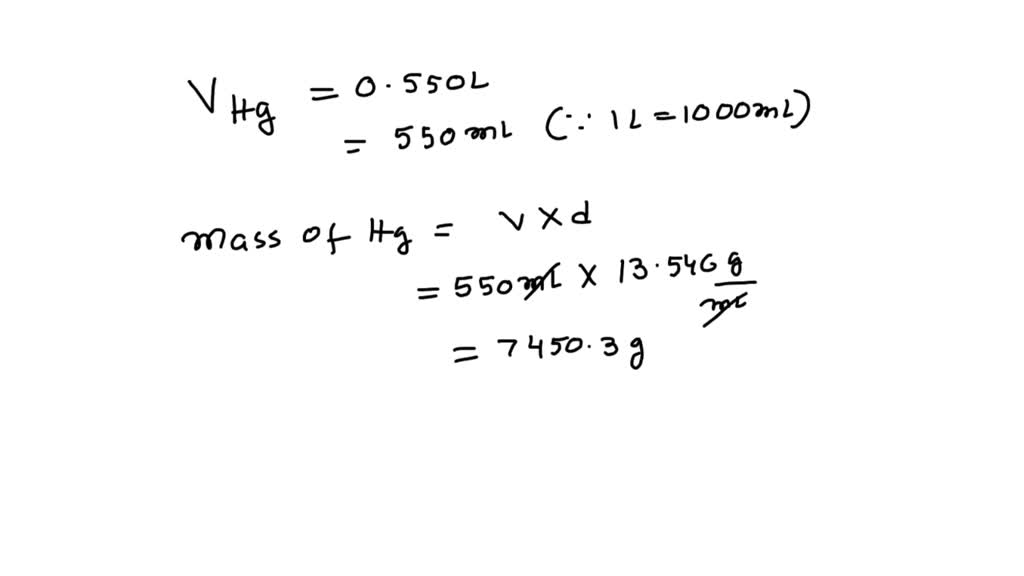 V Hg = 0.550L
= 550 mL (∵ 1L = 1000mL)
mass of Hg = V X d
= 550 mL X 13.546 g/mL
= 7450.3 g